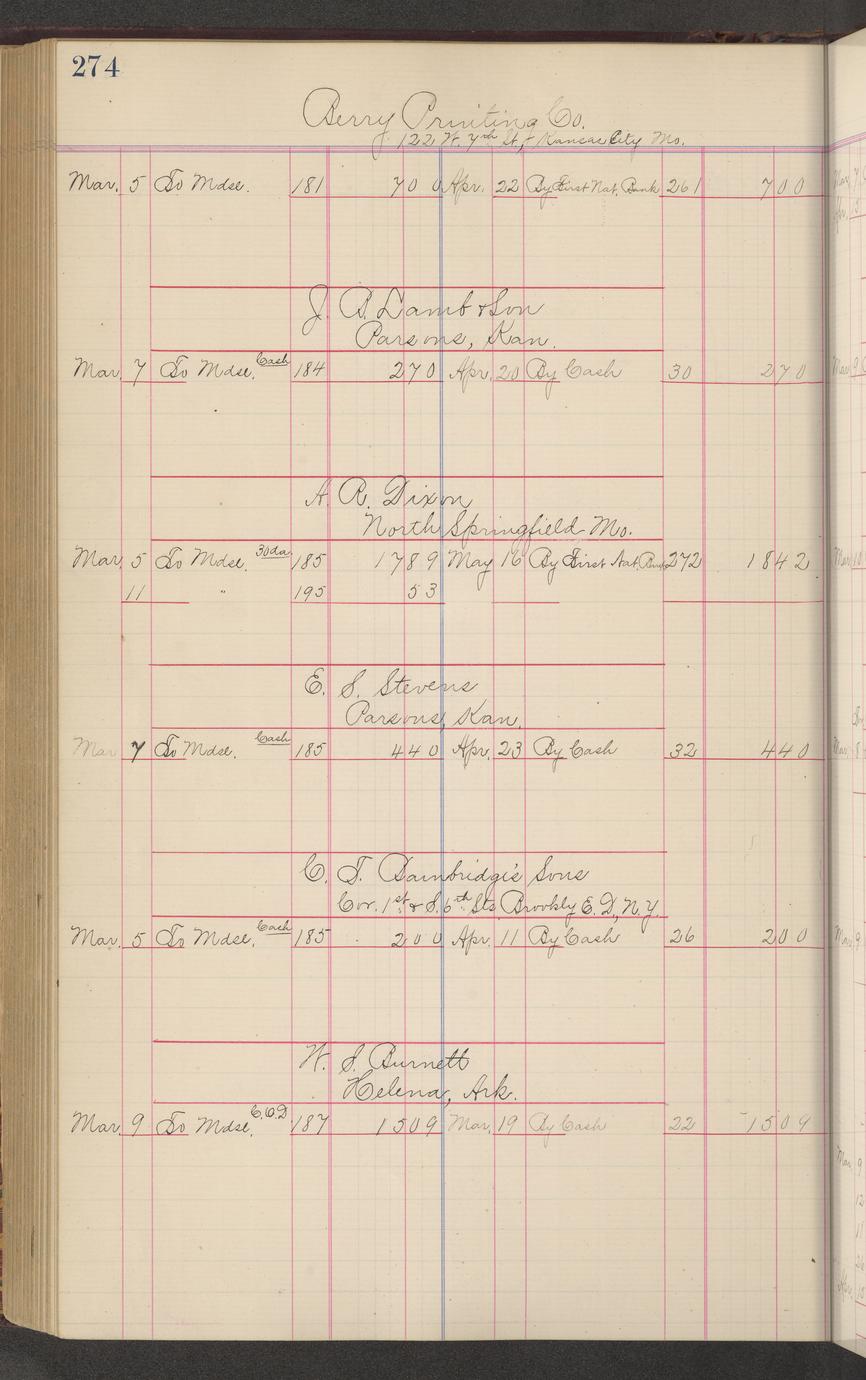 274
Berry Printing Co.
122 W. 7th St, Kansas City Mo.
Mar. 5 To Mdse. 181 700 Apr. 22 By First Nat. Bank 261 700
J. B. Lamb & Son
Parsons, Kan.
Mar. 7 To Mdse. Cash 184 270 Apr. 20 By Cash 30 270
A. R. Dixon
North Springfield Mo.
Mar. 5 To Mdse. 30 da. 185 1789 May 16 By First Nat. Bank 272 1842
11 " 195 53
E. S. Stevens
Parsons, Kan.
Mar 7 To Mdse. Cash 185 440 Apr. 23 By Cash 32 440
C. T. Dambridge's Sons
Cor. 1st & S. 6th Sts Brookly E. D, N.Y.
Mar. 5 To Mdse. Cash 185 200 Apr. 11 By Cash 26 200
W. S. Burnett
Helena, Ark.
Mar. 9 To Mdse. C.O.D. 187 1509 Mar. 19 By Cash 22 1509